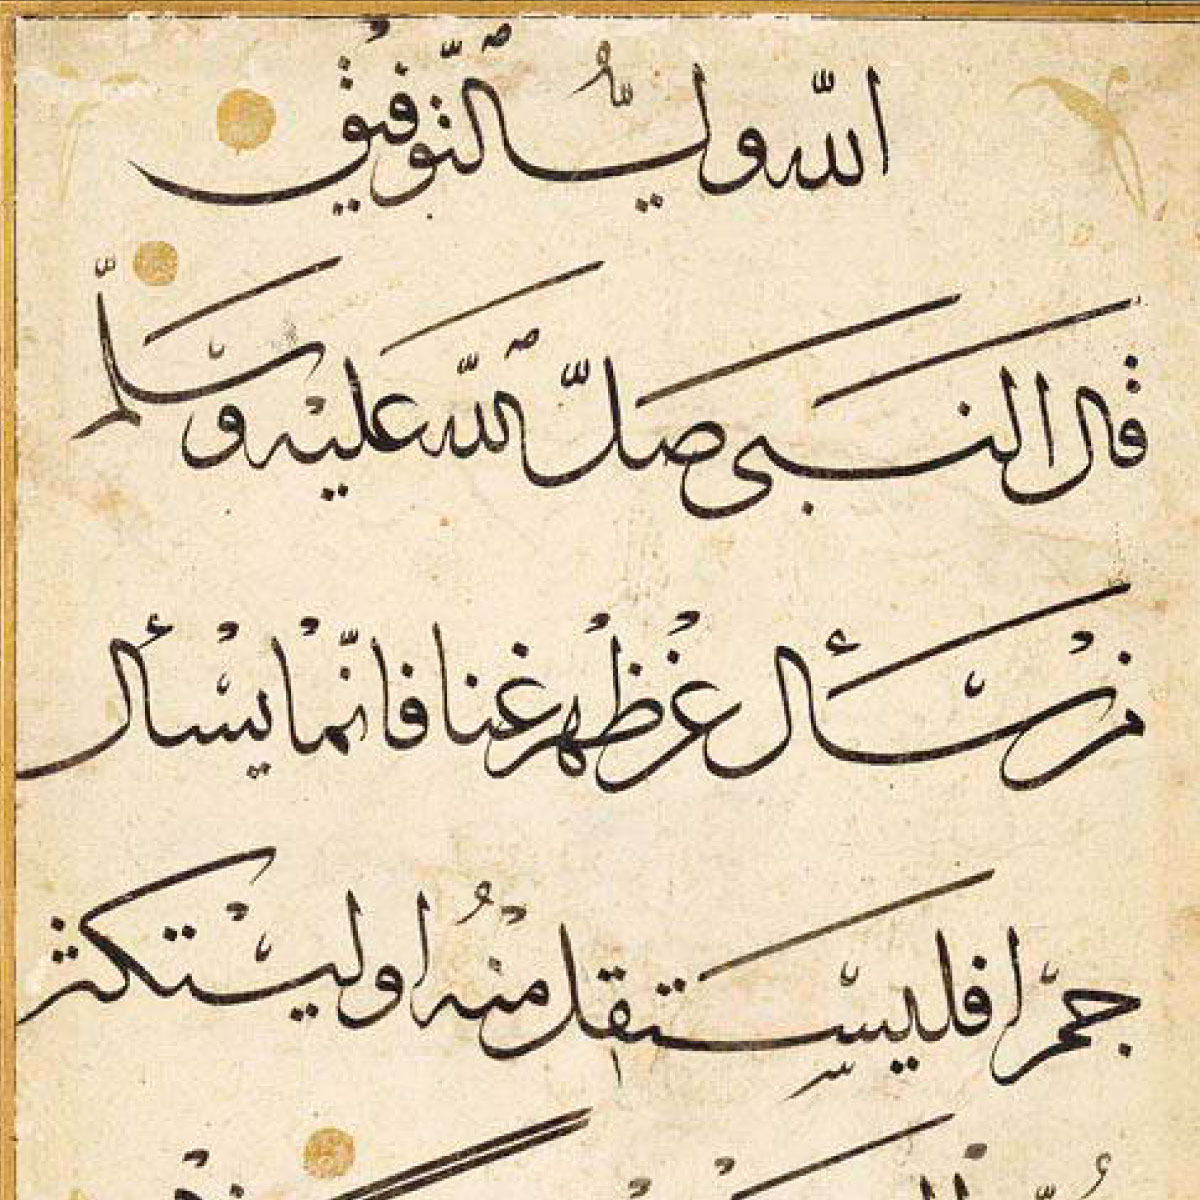 الله ولي التوفيق
قال النبي صلى الله عليه وسلم
من سأل عن ظهر غنا فانما يسأل
جمرا فليستقل منه او ليستكثر